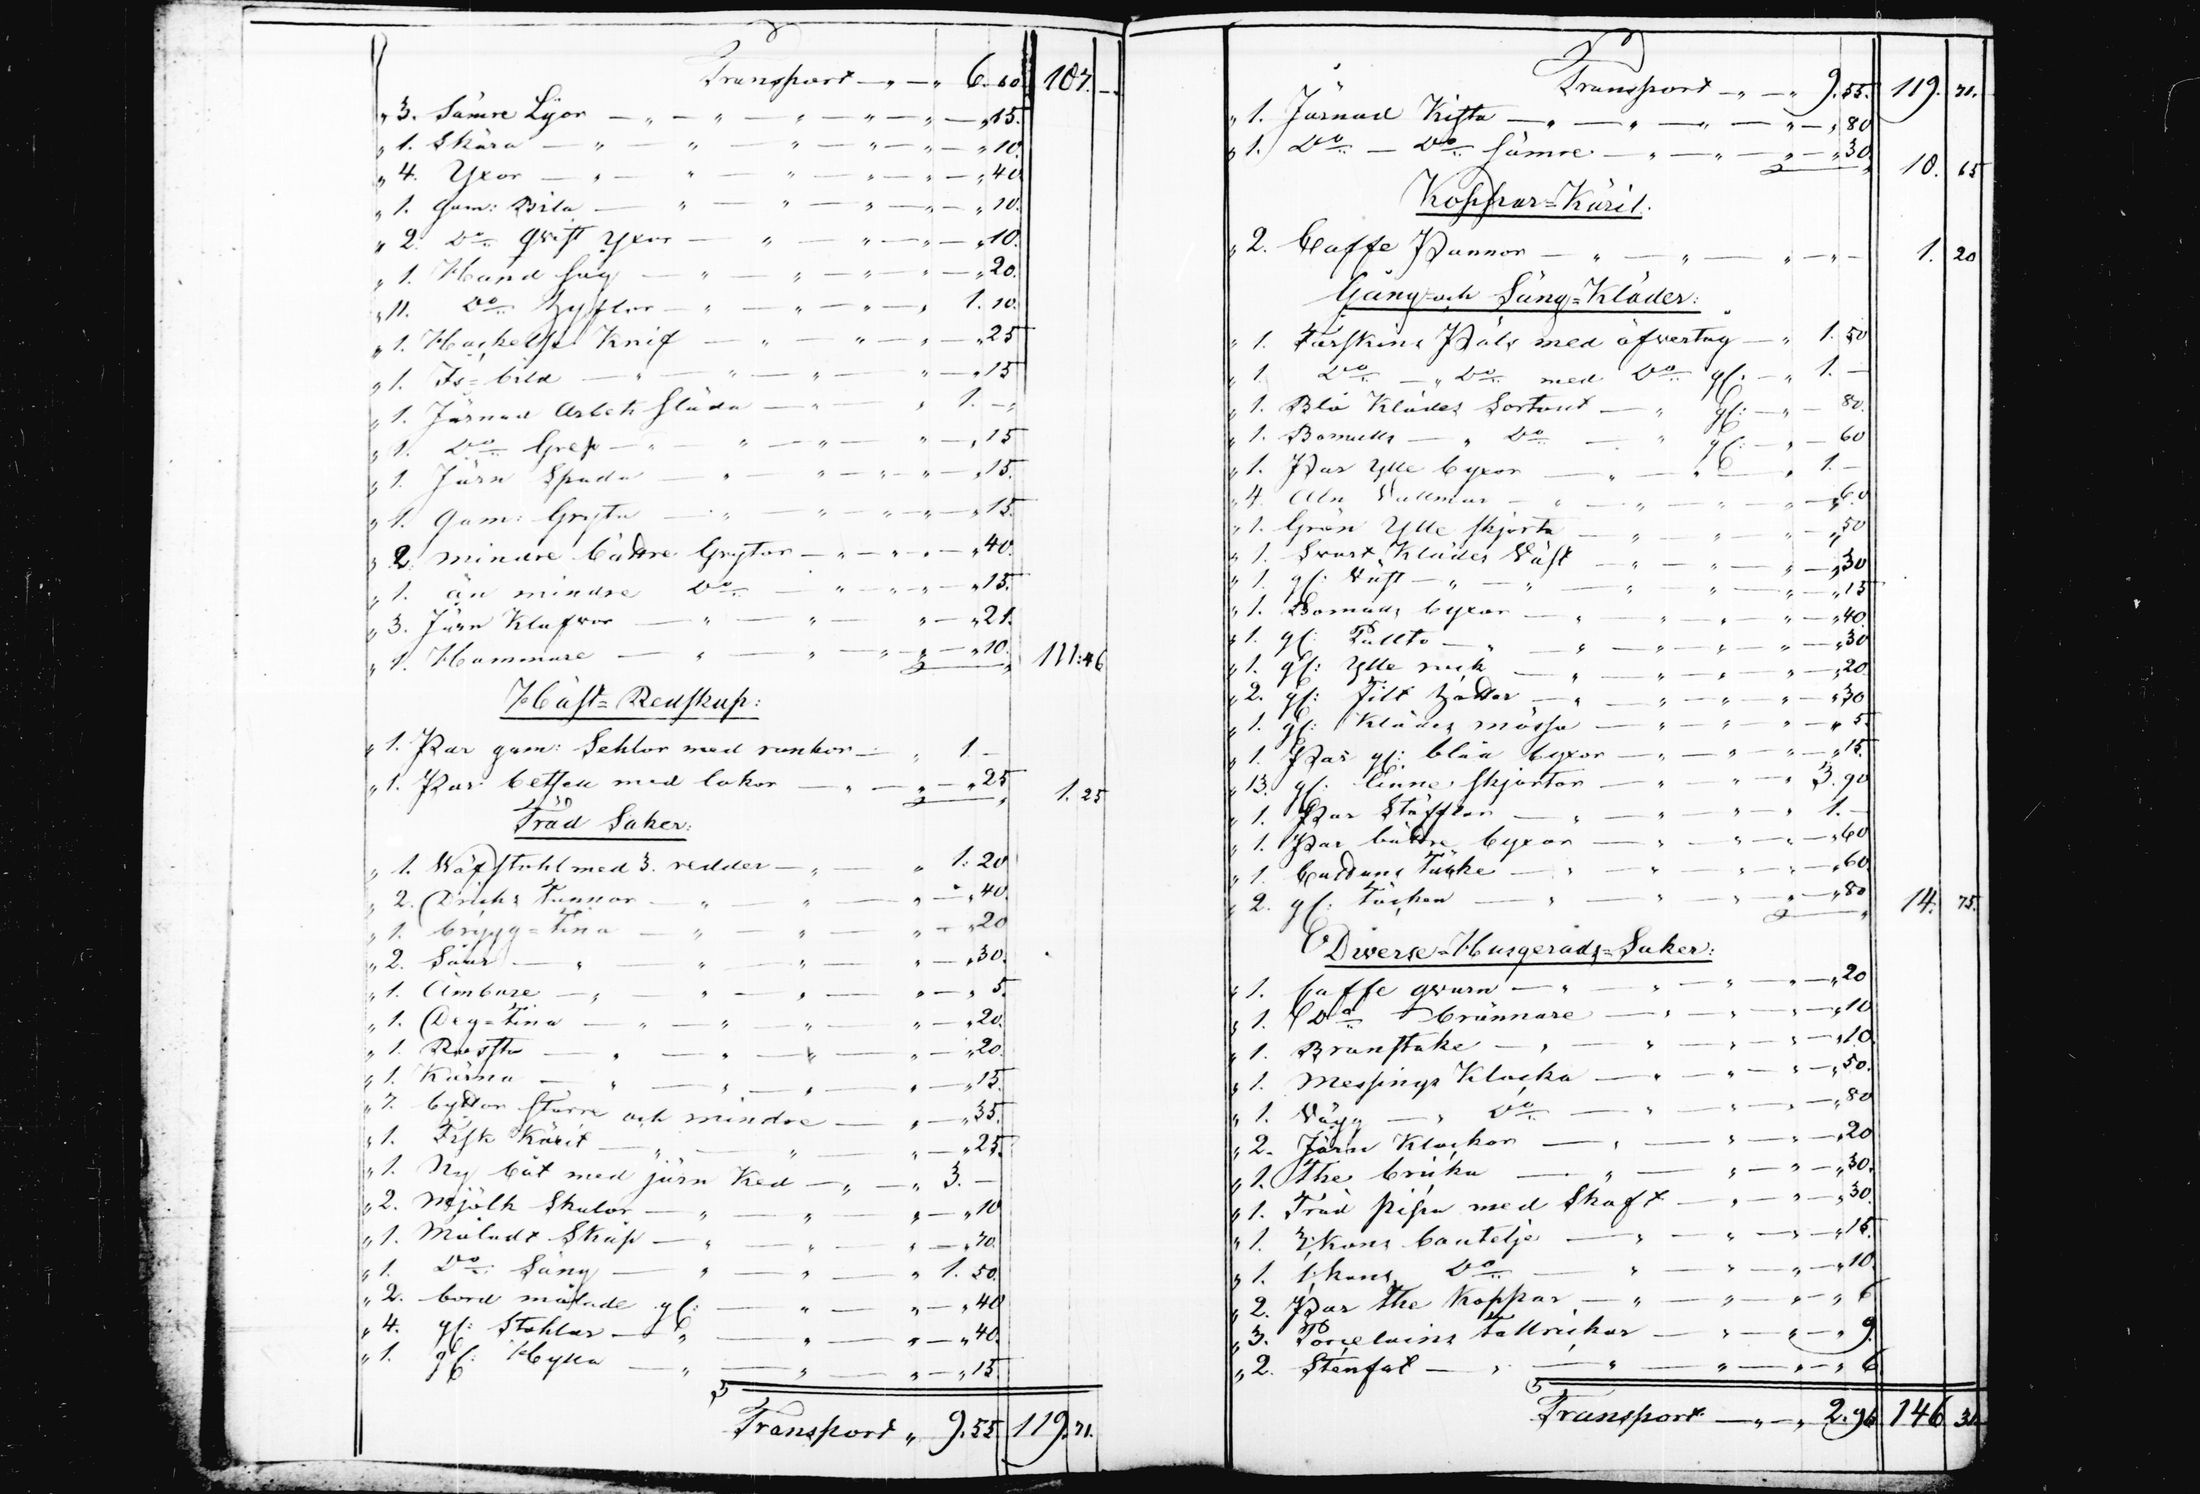 Transport — „ — „ 6. 60. 107. —
„ 3. Sämre Lijor — „ — „ — „ — „ 15.
„ 1. Skära — „ — „ — „ — „ 10.
„ 4. Yxor — „ — „ — „ — „ 40.
„ 1. gam: Bila — „ — „ — „ — „ 10.
„ 2. Do Qvist Yxor — „ — „ — „ 10.
„ 1. Hand såg — „ — „ — „ — „ 20.
„ 11. Do Hyflar — „ — „ — „ 1. 10.
„ 1. Hackelse Knif — „ — „ — „ 25
„ 1. Is-bild — „ — „ — „ — „ 15
„ 1. Järnad Arbets släda — „ — „ 1. —
„ 1. Do Grep — „ — „ — „ — „ 15
„ 1. Järn Spada — „ — „ — „ — „ 15.
„ 1. gam: Gryta — „ — „ — „ — „ 15.
„ 2. mindre bättre Grytor — „ — „ — „ 40.
„ 1. än mindre Do — „ — „ — „ 15.
„ 3. Järn Klafvar — „ — „ — „ 21.
„ 1. Hammare — „ — „ — „ — „ 10. 111: 46
Häst=Redskap:
„ 1. Par gam: Sehlar med rankor — „ 1. —
„ 1. Par betsell med lakor — „ — „ 25 1. 25
Träd Saker:
„ 1. Wäfstohl med 3. redder — „ — „ 1. 20
„ 2. Dricks Tunnor — „ — „ — „ 40.
„ 1. brygg=Tina — „ — „ — „ 20
„ 2. Såar — „ — „ — „ — „ 30.
„ 1. Ämbare — „ — „ — „ — „ 5.
„ 1. Deg=Tina — „ — „ — „ 20.
„ 1. — „ — „ — „ — „ 20.
„ 1. Kärna — „ — „ — „ — „ 15.
„ 7. byttor större och mindre — „ — „ 35.
„ 1. Fisk Käril — „ — „ — „ 25.
„ 1. Ny båt med järn Ked — „ — „ 3. —
„ 2. Mjölk Skålar — „ — „ — „ 10
„ 1. Måladt Skåp — „ — „ — „ 70.
„ 1. Do Säng — „ — „ — „ 1. 50.
„ 2. bord målade gl: — „ — „ 40
„ 4. gl: Stohlar — „ — „ — „ 40.
„ 1. gl: Hylla — „ — „ — „ 15.
Transport „ 9. 55. 119. 71.
Transport — „ — „ 9. 55. 119. 71.
„ 1. Järnad Kista — „ — „ — „ — „ 80
„ 1. Do — Do sämre — „ — „ — „ 30. 10. 65
Koppar=Käril.
„ 2. Caffe Pannor — „ — „ — „ — 1. 20
Gång och Säng=Kläder:
„ 1. Fårskins Päls med öfvertyg — „ 1. 50
„ 1. Do — „ Do med Do gl: — „ 1. —
„ 1. Blå Klädes Sortout — „ gl: — „ — 80.
„ 1. Bomulls — „ Do — „ gl: — „ — 60
„ 1. Par Ylle byxor — „ — „ — „ 1. —
„ 4. Aln Vallmar — „ — „ — „ — „ 60
„ 1. Grön Ylle skjorta — „ — „ — „ 50
„ 1. Svart Klädes Väst — „ — „ — „ 30
„ 1. gl: Väst — „ — „ — „ — „ 15
„ 1. Bomulls byxor — „ — „ — „ 40.
„ 1. gl: Pallto — „ — „ — „ — „ 30
„ 1. gl: Ylle rock — „ — „ — „ 20
„ 2. gl: Filt hattar — „ — „ — „ 30
„ 1. gl: Klädes mössa — „ — „ — „ 5.
„ 1. Par gl: blåa byxor — „ — „ — „ 15.
„ 13. gl: linne skjortor — „ — „ — „ 3. 90
„ 1. Par Stöfflar — „ — „ — „ 1. —
„ 1. Par bättre byxor — „ — „ — „ 60
„ 1. Cattuns Täcke — „ — „ — „ 60.
„ 2. gl: Täcken — „ — „ — „ 80 14. 75.
Diverse=Husgeråds=Saker:
„ 1. Caffe qvarn — „ — „ — „ 20
„ 1. Do brännare — „ — „ — „ 10
„ 1. Branstake — „ — „ — „ 10.
„ 1. Messings Klocka — „ — „ — „ 50.
„ 1. Vägg — „ Do — „ — „ — „ 80
„ 2. Järn Klockor — „ — „ — „ 20
„ 1. the bricka — „ — „ — „ 30.
„ 1. Träd pipa med Skaft — „ — „ 30.
„ 1. 3/Kans boutelje — „ — „ — „ 15.
„ 1. 1/kans Do — „ — „ — „ 10.
„ 2. Par the Koppar — „ — „ — „ 6
„ 3. Porcelains Tallrickar — „ — „ 9.
„ 2. Stenfat — „ — „ — „ — „ 6
Transport — „ — „ 2. 96 146 31.